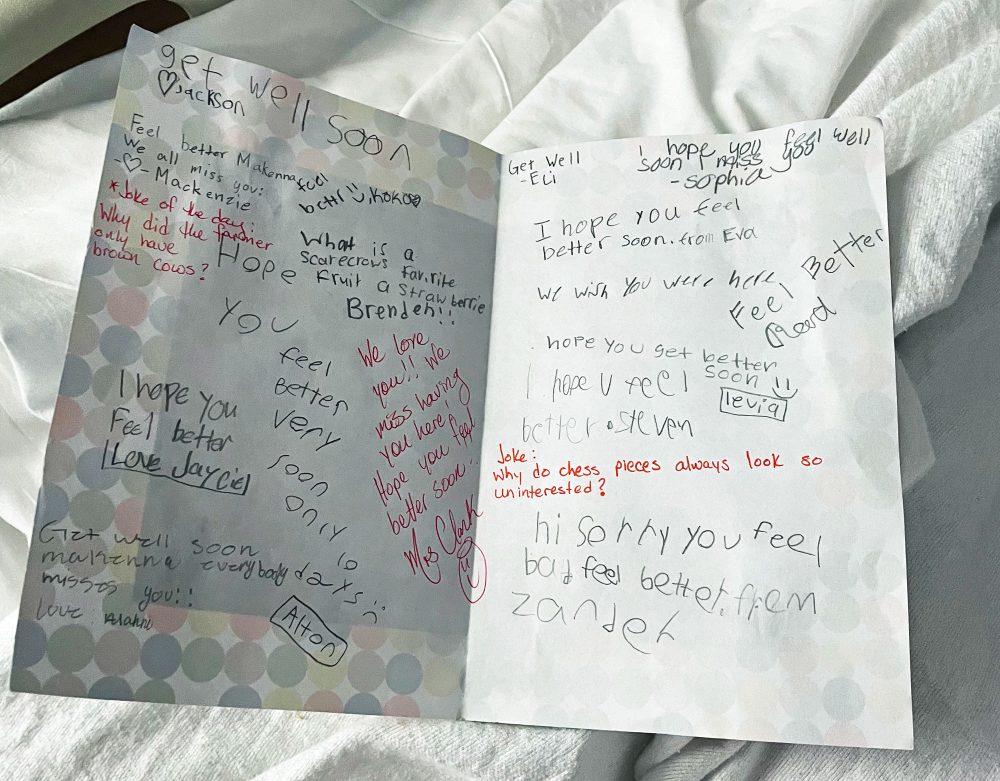 get well soon
♡Jackson
Feel better Makenna
We all miss you:
-♡- Mackenzie
feel
bettr
*Joke of the day:
Why did the farmer
only have
brown cows?
What is a
scarecrows favirite
fruit a Strawberrie
Brenden!!
Hope
You
feel
better
very
soon
only 10
days
Alton
We love
you!! We
miss having
you here!
Hope you feel
better soon!
Mrs Clark
I hope you
Feel better
Love Jayciel
Get well soon
makenna everybody
misses you!!
love
Get Well
-Eli
I hope you feel well
soon I miss you
-sophia
I hope you feel
better soon. from Eva
We wish you were here
Feel Better
hope you get better
soon
levia
I hope U feel
better steven
Joke:
Why do chess pieces always look so
uninterested?
hi sorry you feel
bad feel better. frem
zander